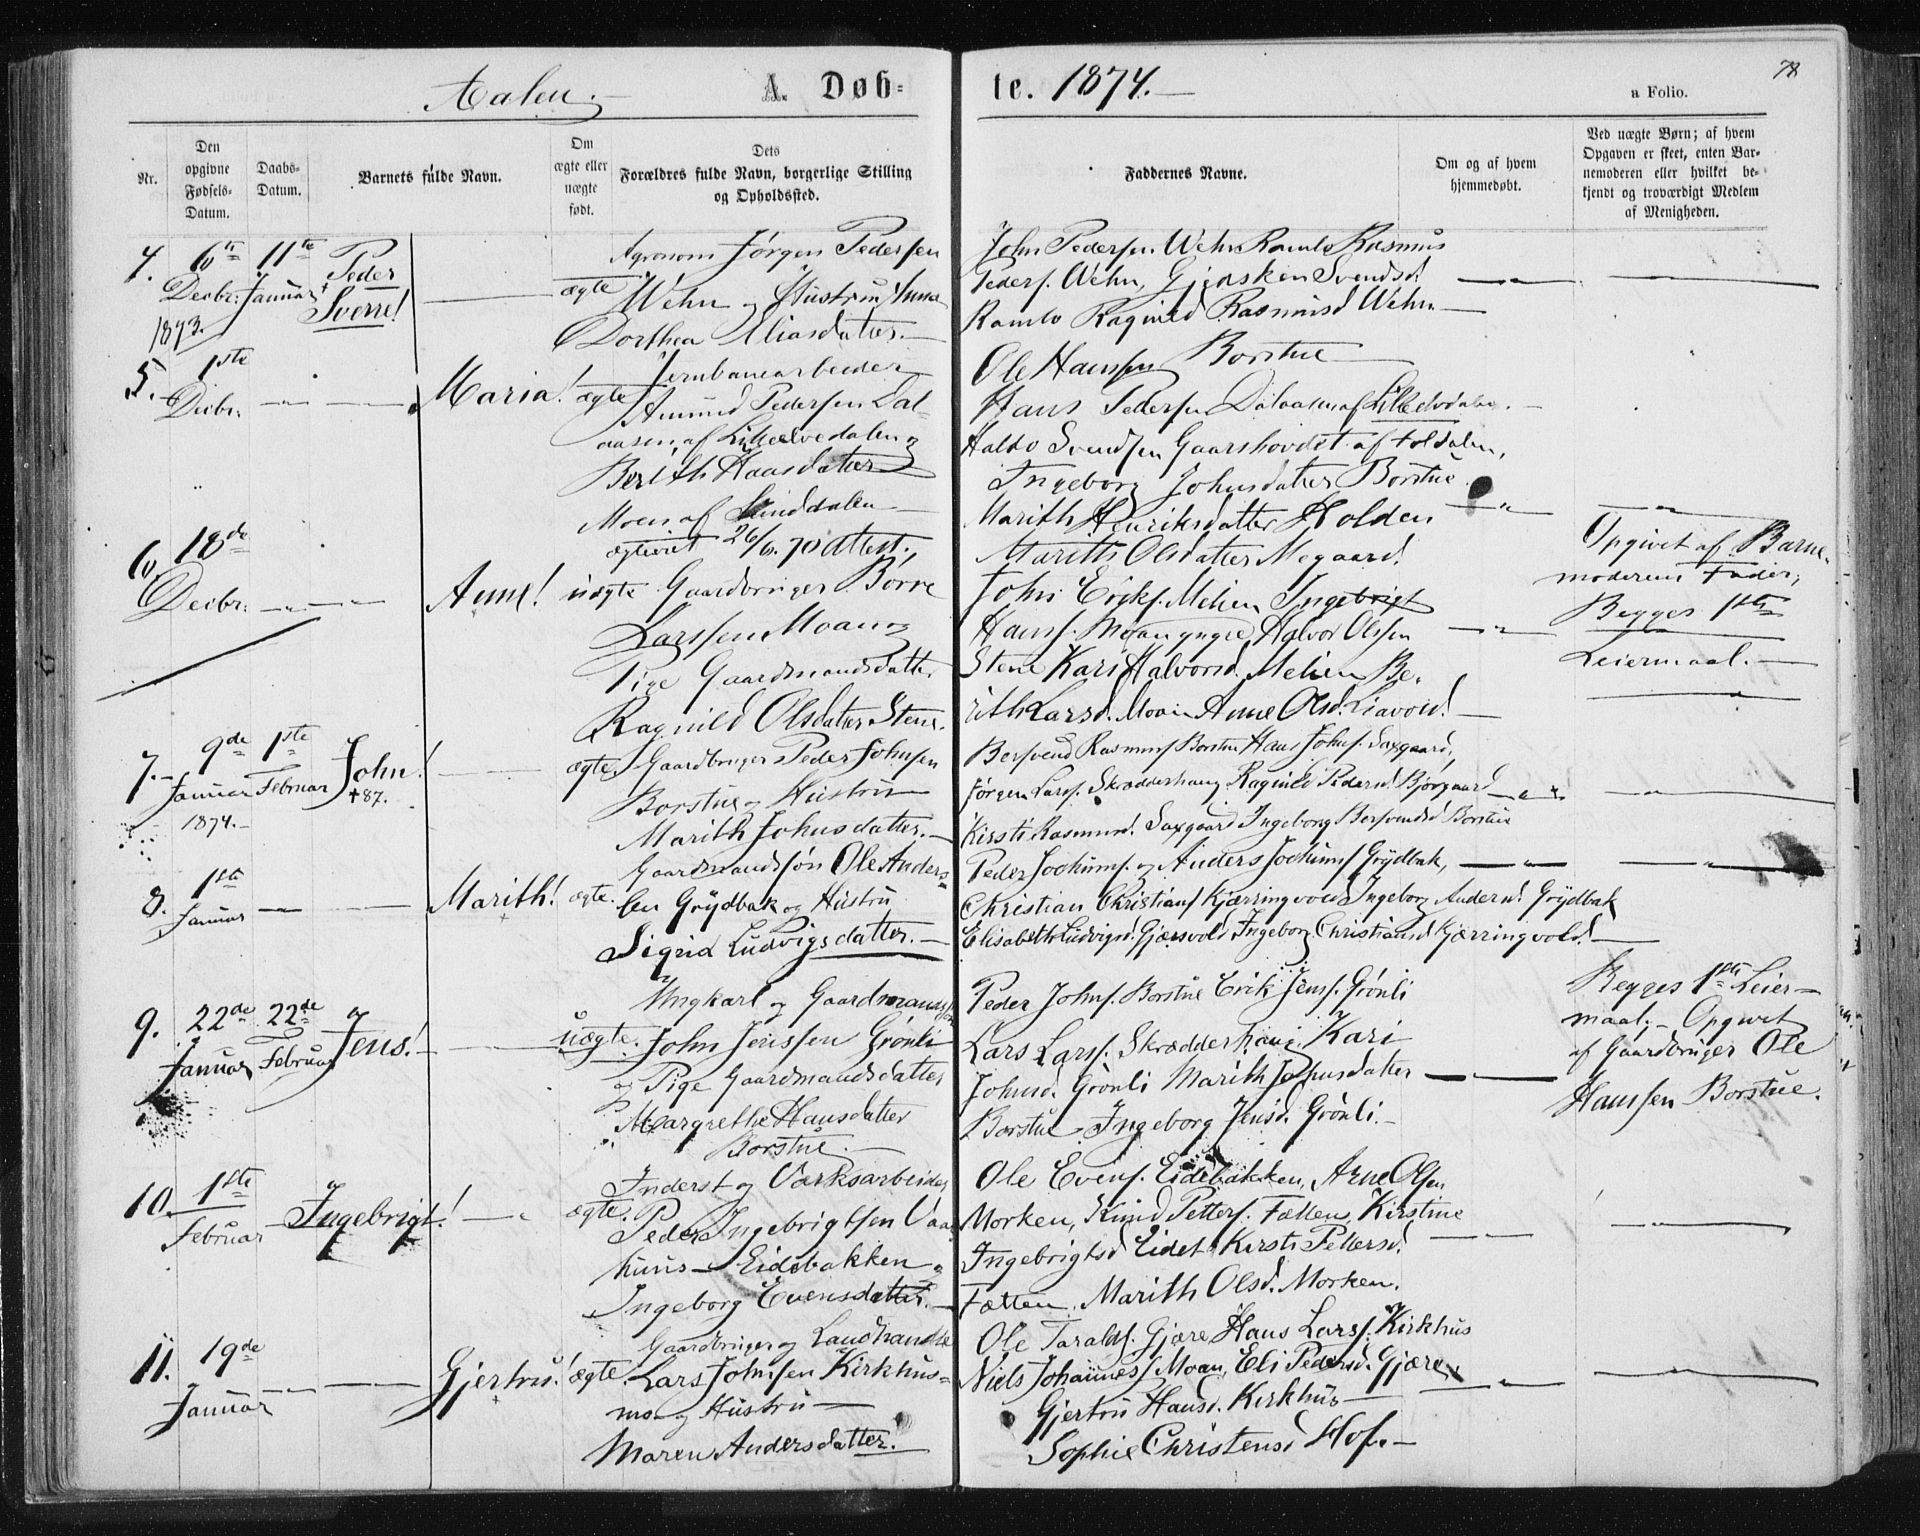 Aalen.
A. Døb=
te. 1874.
78
a Folio.
Nr.
Den opgivne Fødsels-Datum.
Daabs-Datum.
Barnets fulde Navn.
Om ægte eller uægte født.
Dets Forældres fulde Navn, borgerlige Stilling og Opholdssted.
Faddernes Navne.
Om og af hvem hjemmedøbt.
Ved uægte Børn; af hvem Opgaven er skeet, enten Barnemoderen eller hvilket bekjendt og troværdigt Medlem af Menigheden.
4. 6te Decbr: 1873. 11te Januar
Peder Sverre!
ægte
Agronom Jörgen Pedersen
Wehn og Hustru Anna
Dorthea Eliasdatter.
John Peders. Wehn Ramlo Rasmus
Peders. Wehn, Gjertken Svendsd.
Ramlo Ragnild Rasmusd Wehn.
5. 1ste Decbr:
Maria!
ægte
Jernbanearbeider
Amund Pedersen Dal-
aasen af Lilleelvedalen og
Berith Haasdatter
Moen af
ægteviet 26/6. 70 attest.
Ole Hanssen Borstue
Hans Pedersen Dalaasen af Lilleelvdalen.
Haldo Svendsen Gaarshovdet af Foldalen,
Ingeborg Johnsdatter Borstue
Marith Henriksdatter Holden
6. 18de Decbr:
Anne!
uægte
Gaardbruger Börre
Larssen Moan og
Pige Gaardmandsdatter
Ragnild Olsdatter Stene.
Marith Olsdatter Megaard.
John Eriks. Melien Ingebrigt
Hans. Moan yngre, Halvor Olssen
Stene Kari Halvorsd. Melien Be-
rith Larsd. Moan Anne Olsd. Liavold!
Opgivet af Barne-
moderens Fader,
Begges 1ste
Leiermaal.
7. 9de Januar 1874. 1ste Februar
John! +87.
ægte.
Gaardbruger Peder Johnsen
Borstue og Hustru
Marith Johnsdatter.
Bersvend Rasmuss Borstue Hans Johns. Saxgaard,
Jörgen Lars. Skrædderhaug Ragnild Pedersd. Bjørgaard
Kirsti Rasmusd. Saxgaard Ingeborg Bersvendsd Borstue
8. 1ste Januar
Marith!
ægte.
Gaardmandssön Ole Anders=
sen Gröydbak og Hustru
Sigrid Ludvigsdatter.
Peder Jochums. og Anders Jochums Gröydbak,
Christian Christians Kjærringvold Ingeborg Andersd. Gröydbak
Elisabeth Ludvigsd. Gjærsvold Ingeborg Christiansd Kjærringvold.
9. 22de Januar 22de Februar
Jens!
uægte.
Ungkarl og Gaardmandssön
John Jenssen Grönli
og Pige Gaardmandsdatter
Margrethe Hansdatter
Borstue.
Peder Johns. Borstue Erik Jens. Grönli
Lars Lars. Skrædderhaug. Kari
Johnsd. Grönli Marith Johnsdatter
Borstue Ingeborg Jensd. Grönli.
Begges 1ste Leier-
maal. Opgivet
af Gaardbruger Ole
Hanssen Borstue.
10. 1ste Februar
Ingebrigt!
ægte.
Inderst og Værksarbeider
Peder Ingebrigtsen Vaa-
huus Eidebakken og
Ingeborg Evensdatter.
Ole Evens. Eidebakken, Arne Olsen
Morken, Knud Petters. Fætten, Kirstine
Ingebrigtsd Eidet Kirsti Pettersd.
Fætten. Marith Olsd. Morken.
11. 19de Januar
Gjertru!
ægte.
Gaardbruger og Landhandle
Lars Johnsen Kirkhus=
mo og Hustru
Maren Andersdatter.
Ole Taralds. Gjære Hans Lars. Kirkhus
Niels Johannes. Moan, Eli Pedersd. Gjære,
Gjertru Hansd. Kirkhus
Sophie Christensd Hof.